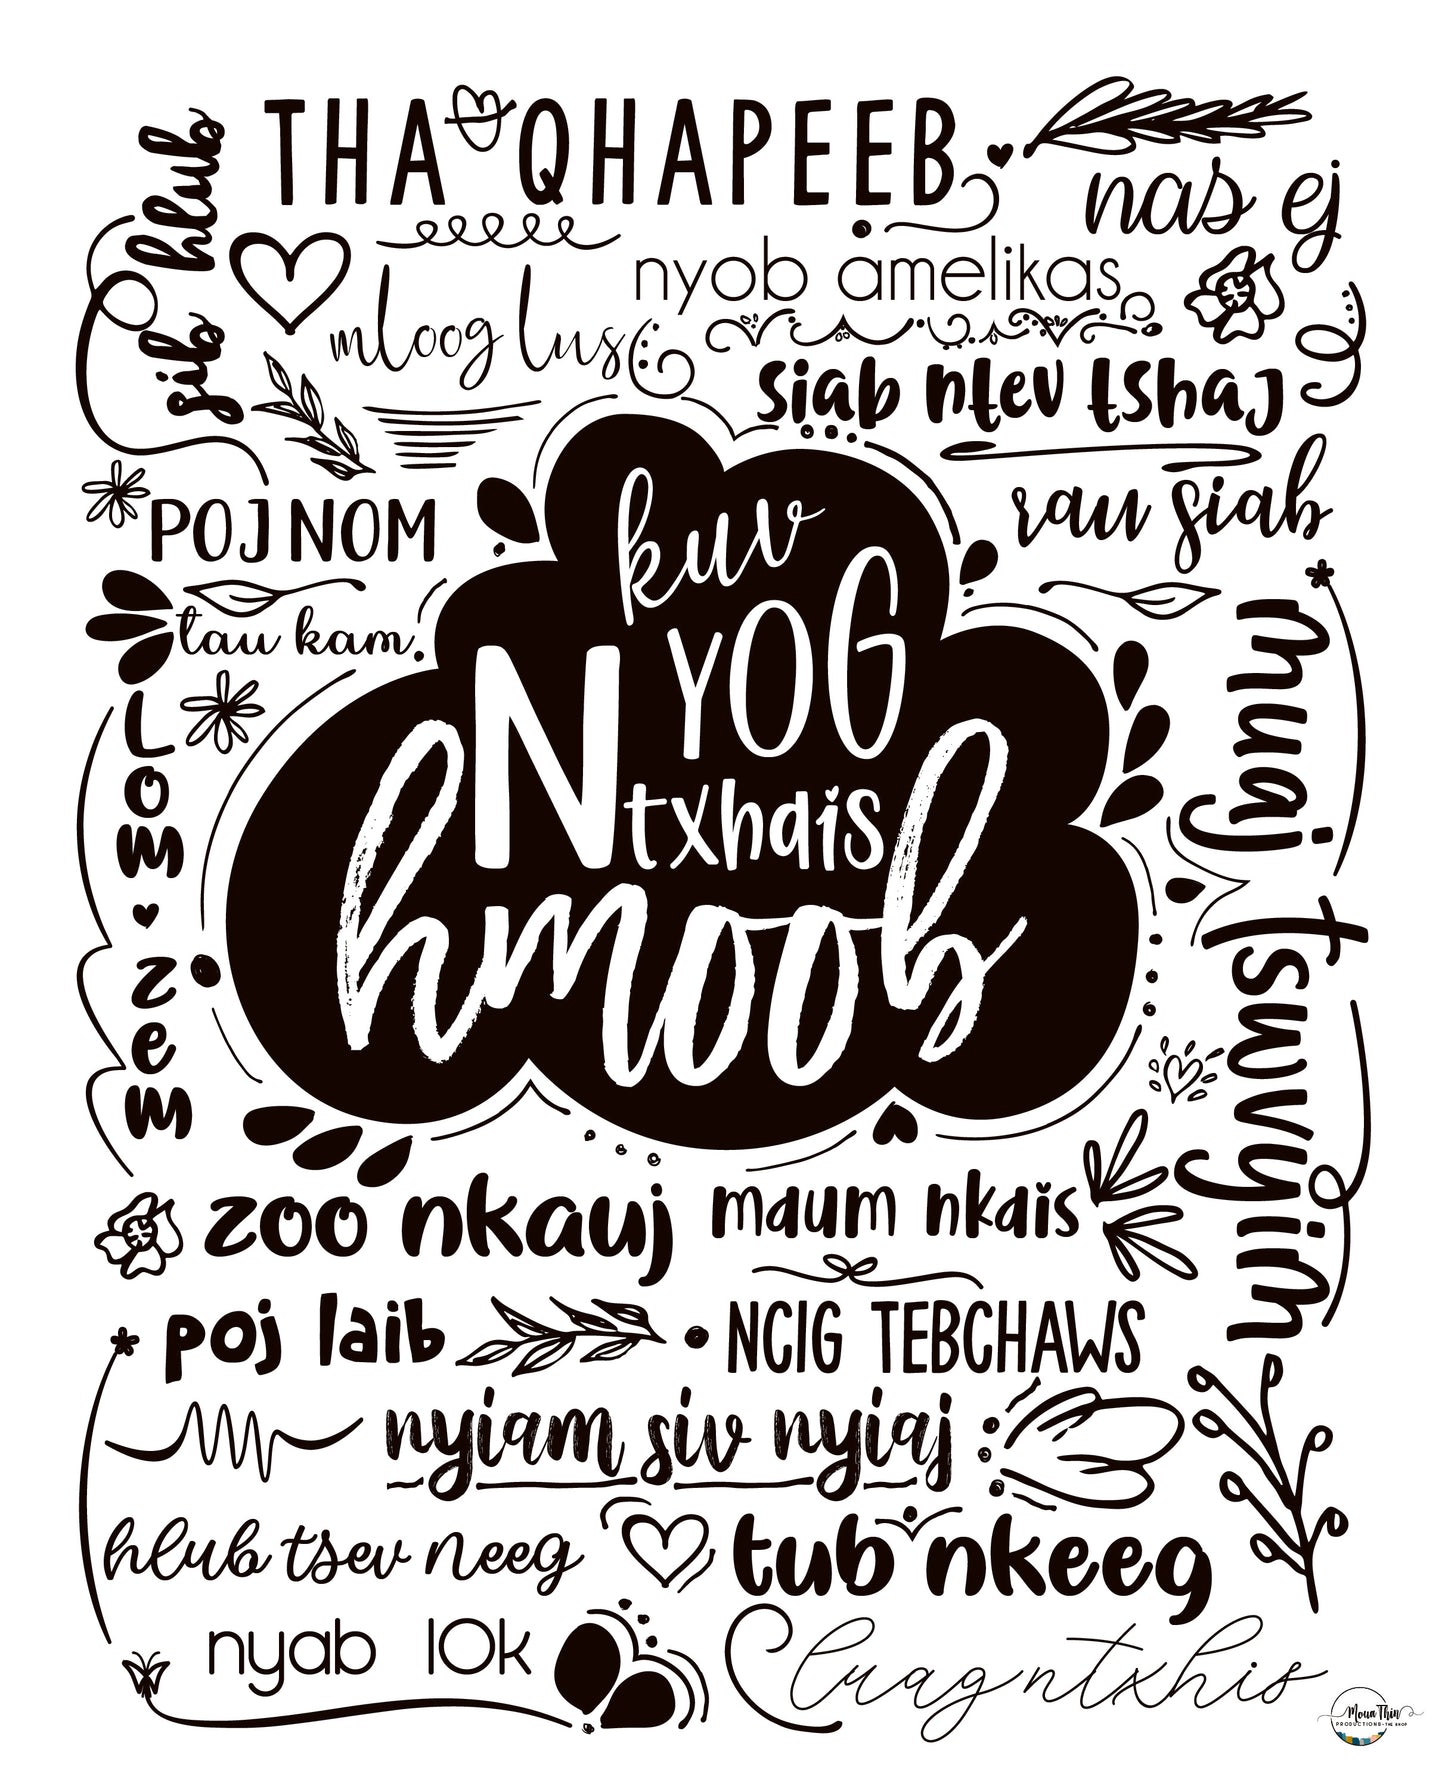 THA QHAPEEB
nas ej
sib hlub
nyob amelikas
mloog lus
siab ntev tshaj
rau siab
POJ NOM
tau kam
kuv
YOG
Ntxhais
hmoob
Lom zem
muaj tswvyim
zoo nkauj
maum nkais
poj laib
NCIG TEBCHAWS
nyiam siv nyiaj
hlub tsev neeg
tub nkeeg
nyab 10k
luag ntxhis
Moua Thin
PRODUCTIONS-THE SHOP